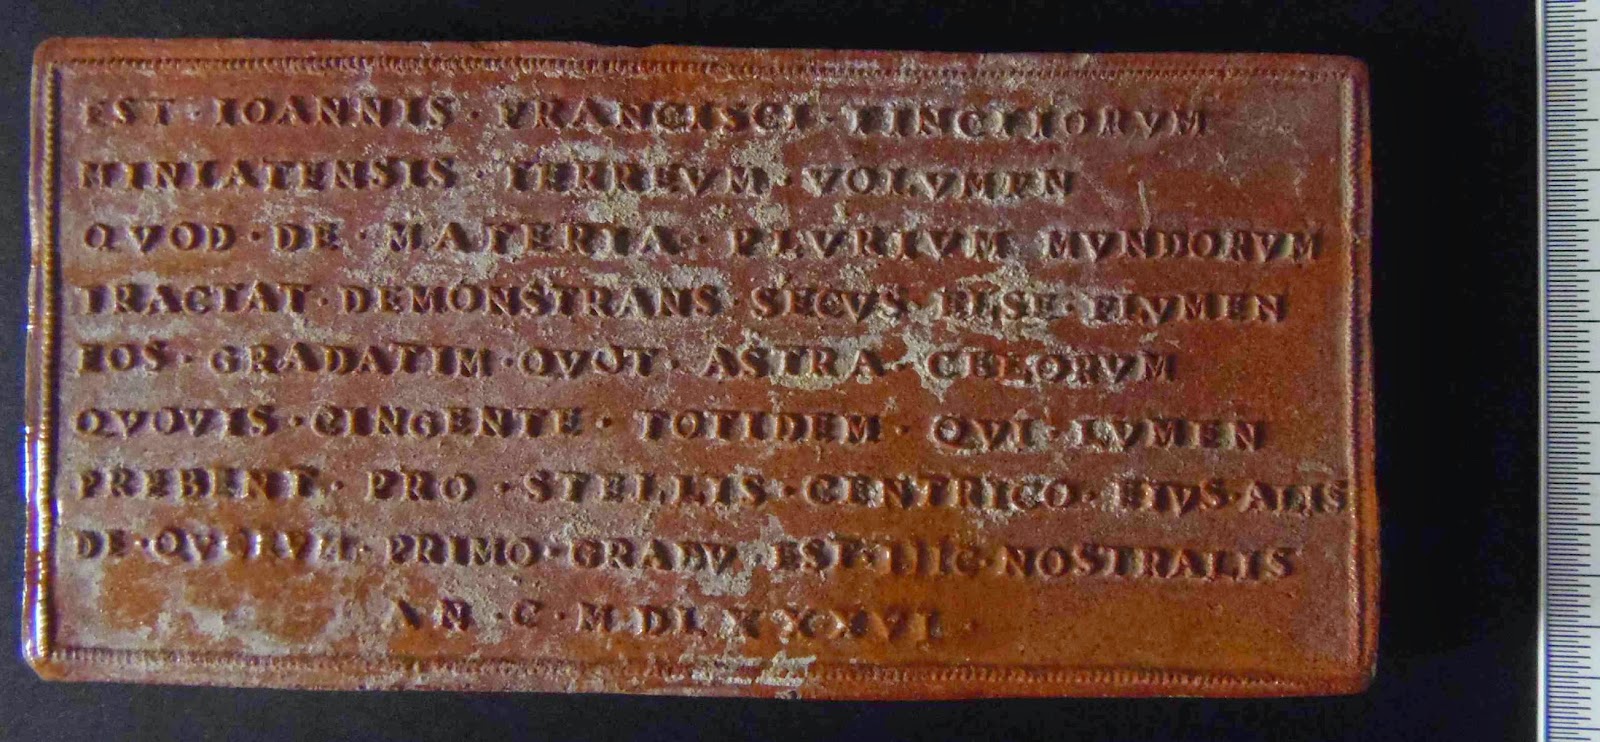 EST · IOANNIS · FRANCISCI · TINCTIORVM
MINIATENSIS · TERREVM · VOLVMEN
QVOD · DE · MATERIA · PLVRIVM MVNDORVM
TRACTAT · DEMONSTRANS · SECVS · ELSE · FLVMEN
HOS · GRADATIM · QVOT · ASTRA · CELORVM
QVOVIS · CINGENTE · TOTIDEM · QVI · LVMEN
PREBENT · PRO · STELLIS · CENTRICO · EIVS · ALIS
DE · QVORVM · PRIMO · GRADV · EST · HIC · NOSTRALIS
AN · C · M · DLXXXVI ·